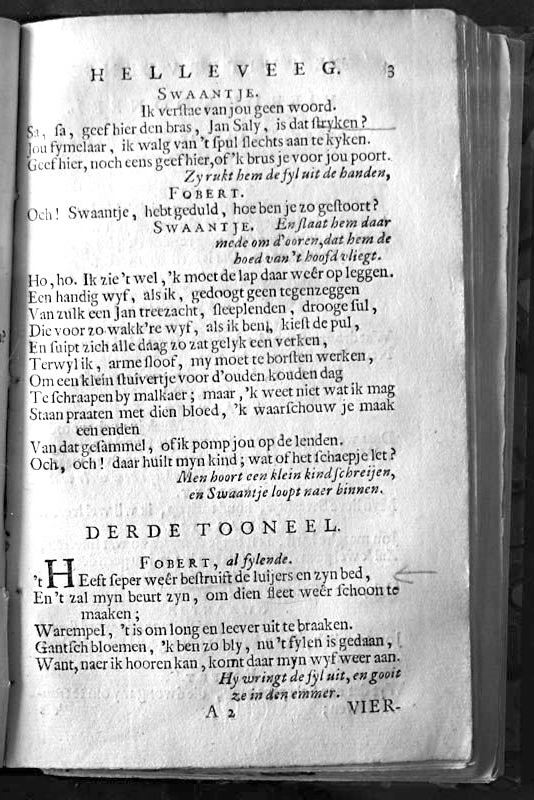 HELLEVEEG. 3
SWAANTJE.
Ik verſtae van jou geen woord.
Sa, ſa, geef hier den bras, Jan Saly, is dat ſtryken?
Jou fymelaar, ik walg van 't ſpul ſlechts aan te kyken.
Geef hier, noch eens geef hier, of 'k brus je voor jou poort.
Zy rukt hem de ſyl uit de handen,
FOBERT.
Och! Swaantje, hebt geduld, hoe ben je zo geſtoort?
SWAANTJE. En ſlaat hem daar
mede om d'ooren, dat hem de
hoed van 't hoofd vliegt.
Ho, ho. Ik zie 't wel, 'k moet de lap daar weêr op leggen.
Een handig wyf, als ik, gedoogt geen tegenzeggen
Van zulk een Jan treezacht, ſleeplenden, drooge ſul,
Die voor zo wakk're wyf, als ik ben, kieſt de pul,
En ſuipt zich alle daag zo zat gelyk een verken,
Terwyl ik, arme ſloof, my moet te borſten werken,
Om een klein ſtuivertje voor d'ouden kouden dag
Te ſchraapen by malkaer; maar, 'k weet niet wat ik mag
Staan praaten met dien bloed, 'k waarſchouw je maak
een enden
Van dat geſammel, of ik pomp jou op de lenden.
Och, och! daar huilt myn kind; wat of het ſchaepje let?
Men hoort een klein kind ſchreijen,
en Swaantje loopt naer binnen.
DERDE TOONEEL.
FOBERT, al ſylende.
't HEeft ſeper weêr beſtruift de luijers en zyn bed,
En 't zal myn beurt zyn, om dien ſleet weêr ſchoon te
maaken;
Warempel, 't is om long en leever uit te braaken.
Gantſch bloemen, 'k ben zo bly, nu 't ſylen is gedaan,
Want, naer ik hooren kan, komt daar myn wyf weer aan.
Hy wringt de ſyl uit, en gooit
ze in den emmer.
A 2 VIER-